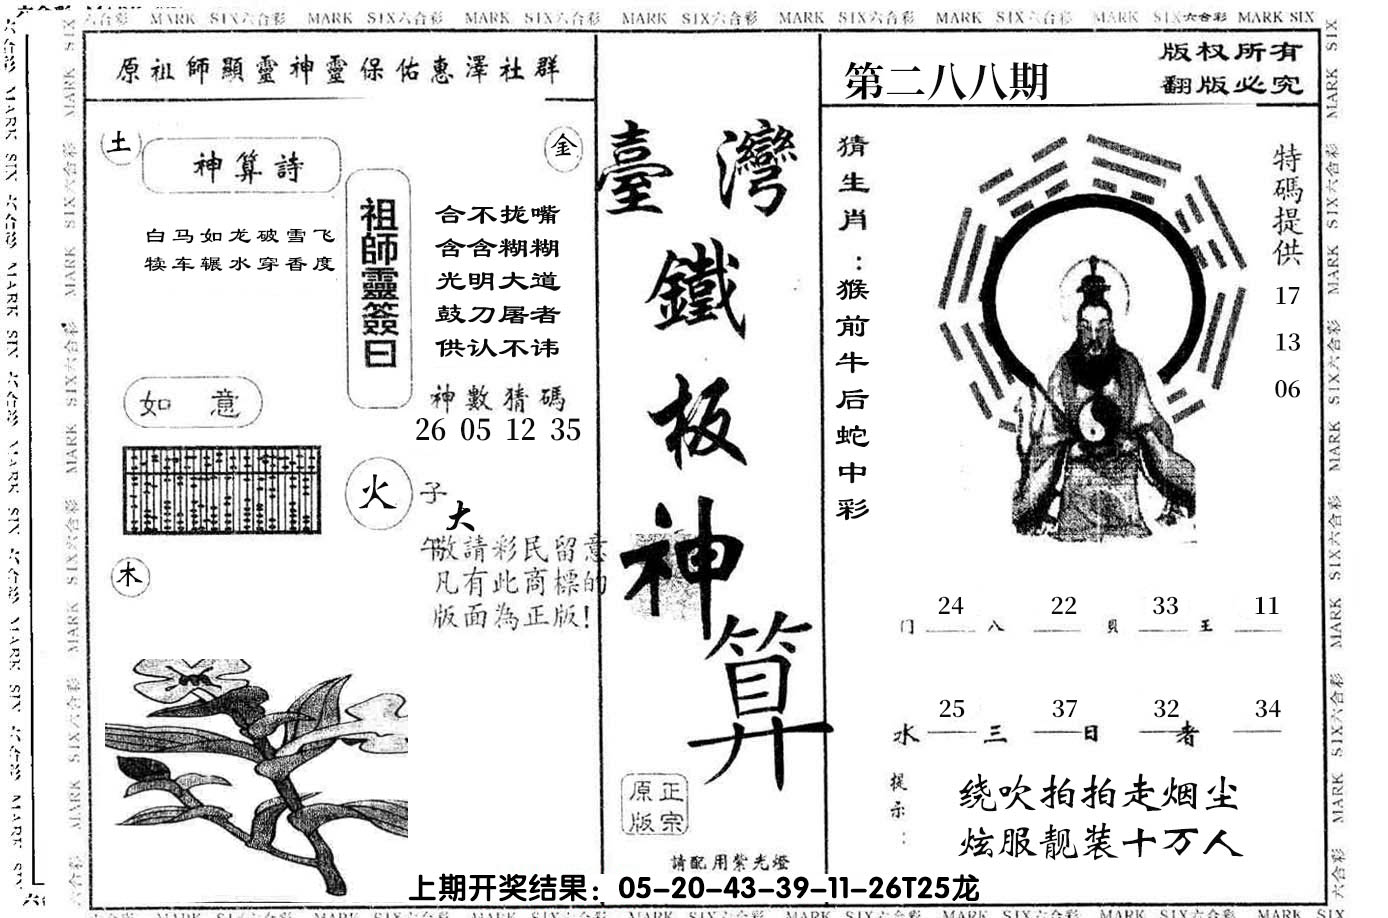 MARK SIX六合彩 MARK SIX六合彩 MARK SIX六合彩 MARK SIX六合彩 MARK SIX六合彩 MARK SIX六合彩 MARK SIX六合彩 MARK SIX
原祖師顯靈神靈保佑惠澤社群
土
金
神算詩
白马如龙破雪飞
犊车辗水穿香度
祖師靈簽曰
合不拢嘴
含含糊糊
光明大道
鼓刀屠者
供认不讳
神數猜碼
26 05 12 35
如意
火
子
大
午敬請彩民留意
凡有此商標的
版面為正版!
木
臺灣
鐵
板
神
算
正宗
原版
請配用紫光燈
第二八八期
版权所有
翻版必究
猜生肖:猴前牛后蛇中彩
特碼提供
17
13
06
24 22 33 11
门 八 貝 王
25 37 32 34
水 三 日 者
提示:
绕吹拍拍走烟尘
炫服靓装十万人
上期开奖结果：05-20-43-39-11-26T25龙